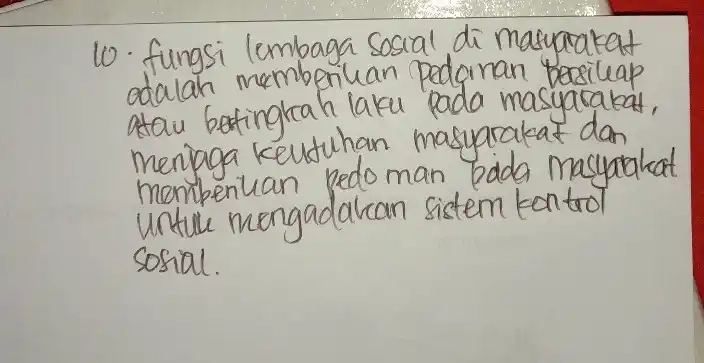 10. fungsi lembaga sosial di masyarakat
adalah memberikan pedoman bersikap
atau bertingkah laku pada masyarakat,
menjaga keutuhan masyarakat dan
memberikan pedoman pada masyarakat
untuk mengadakan sistem kontrol
sosial.